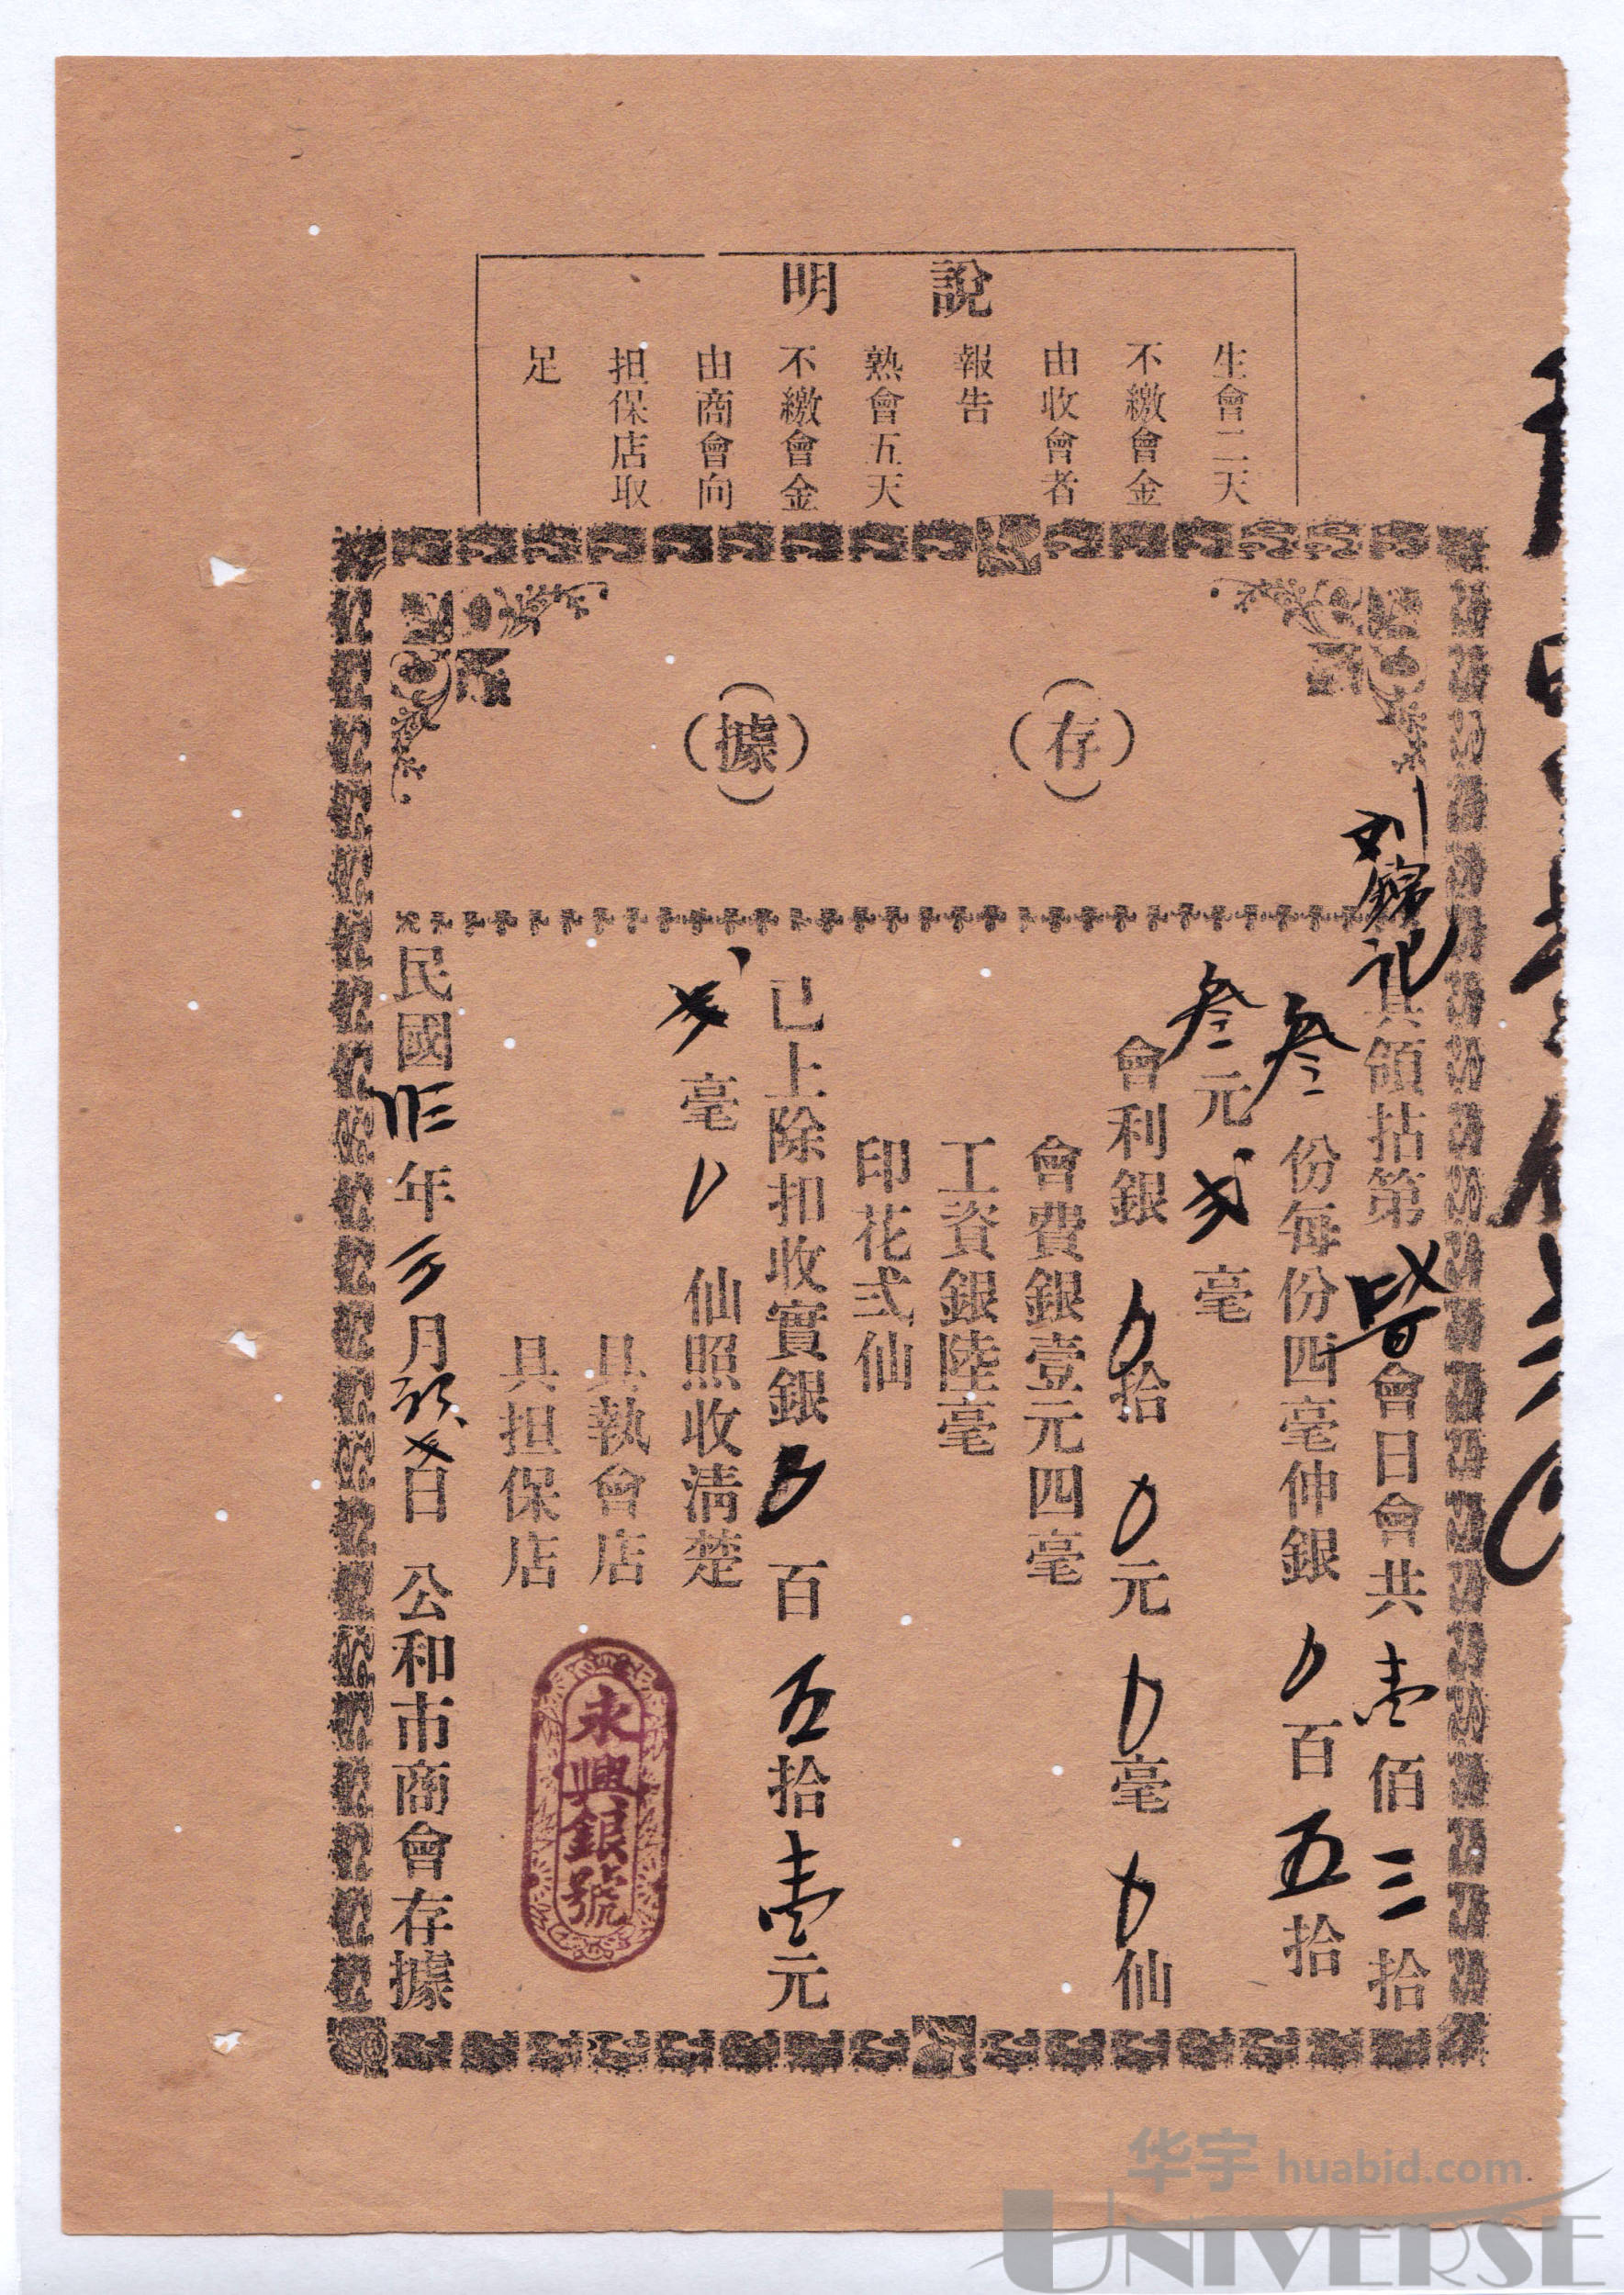 說明
生會二天
不繳會金
由收會者
報告
熟會五天
不繳會金
由商會向
担保店取
足
(存)(據)
劉錦記具領拈第 會日會共壹佰三拾
叁份每份四毫伸銀 百五拾
叁元 毫
會利銀 拾 元 毫 仙
會費銀壹元四毫
工資銀陸毫
印花弍仙
已上除扣收實銀 百五拾壹元
毫 仙照收清楚
具執會店
具担保店
永興銀號
民國 年 月 日 公和市商會存據
华宇 huabid.com
UNIVERSE